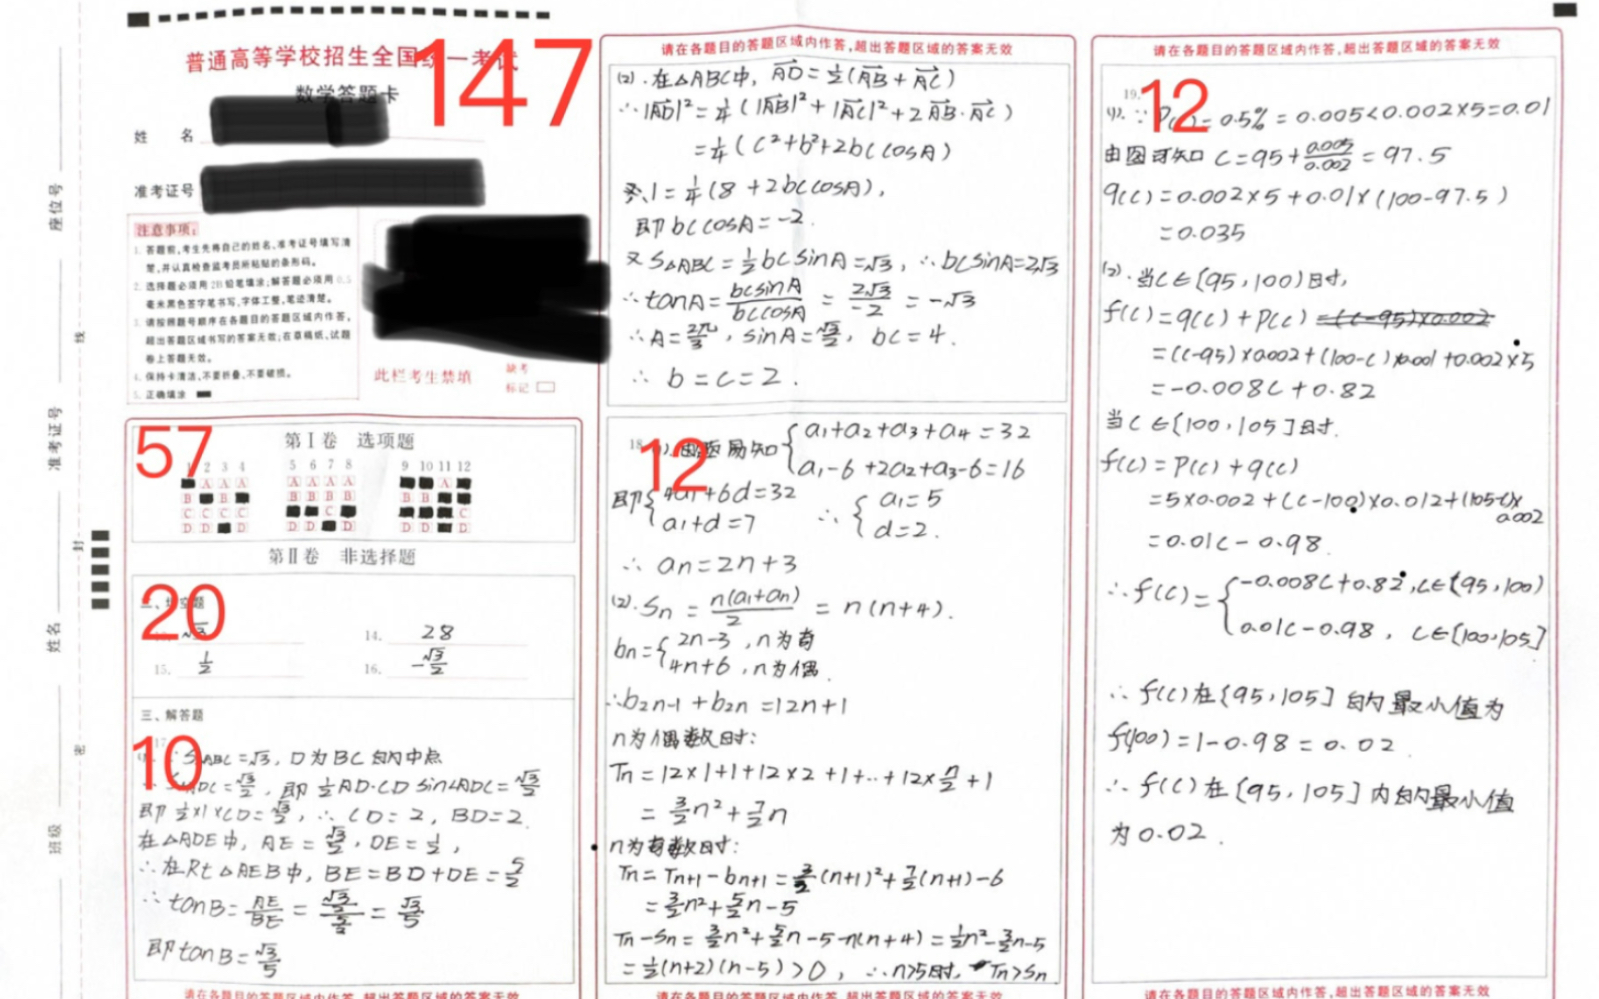 普通高等学校招生全国统一考试
147
数学答题卡
姓 名
准考证号
注意事项:
1. 答题前,考生先将自己的姓名、准考证号填写清
楚,并认真检查监考员所粘贴的条形码。
2. 选择题必须用2B铅笔填涂;解答题必须用0.5
毫米黑色签字笔书写,字体工整,笔迹清楚。
3. 请按照题号顺序在各题目的答题区域内作答,
超出答题区域书写的答案无效;在草稿纸、试题
卷上答题无效。
4. 保持卡清洁,不要折叠、不要破损。
5. 正确填涂
此栏考生禁填
缺考
标记
座位号
准考证号
姓名
班级
密
封
线
57
第Ⅰ卷 选项题
1 2 3 4 5 6 7 8 9 10 11 12
第Ⅱ卷 非选择题
20
二、填空题
√3
14. 28
15. 1/2
16. -√3/2
三、解答题
10
S△ABC=√3, D为BC的中点
S△ADC=√3/2, 即1/2AD·CD sin∠ADC=√3/2
即1/2×1×CD=√3/2, ∴CD=2, BD=2.
在△ADE中, AE=√3/2, DE=1/2,
∴在Rt△AEB中, BE=BD+DE=5/2
∴tanB=AE/BE=(√3/2)/(5/2)=√3/5
即tanB=√3/5
请在各题目的答题区域内作答,超出答题区域的答案无效
请在各题目的答题区域内作答,超出答题区域的答案无效
(2).在△ABC中, AD=1/2(AB+AC)
∴|AD|²=1/4(|AB|²+|AC|²+2AB·AC)
=1/4(c²+b²+2bccosA)
又1=1/4(8+2bccosA),
即bccosA=-2.
又S△ABC=1/2bcsinA=√3, ∴bcsinA=2√3
∴tanA=bcsinA/bccosA=2√3/-2=-√3
∴A=2π/3, sinA=√3/2, bc=4.
∴b=c=2.
18.
12
(1).由题易知{a1+a2+a3+a4=32
a1-6+2a2+a3-6=16
即{4a1+6d=32
a1+d=7
∴{a1=5
d=2.
∴an=2n+3
(2).Sn=n(a1+an)/2=n(n+4).
bn={2n-3, n为奇
4n+6, n为偶.
∴b2n-1+b2n=12n+1
n为偶数时:
Tn=12×1+1+12×2+1+…+12×n/2+1
=3/2n²+7/2n
n为奇数时:
Tn=Tn+1-bn+1=3/2(n+1)²+7/2(n+1)-6
=3/2n²+5/2n-5
Tn-Sn=3/2n²+5/2n-5-n(n+4)=1/2n²-3/2n-5
=1/2(n+2)(n-5)>0, ∴n>5时, Tn>Sn
请在各题目的答题区域内作答,超出答题区域的答案无效
请在各题目的答题区域内作答,超出答题区域的答案无效
19.
12
(1).∵P(c)=0.5%=0.005<0.002×5=0.01
由图可知 c=95+0.005/0.002=97.5
q(c)=0.002×5+0.01×(100-97.5)
=0.035
(2).当c∈[95,100)时,
f(c)=q(c)+p(c)=(c-95)×0.002
=(c-95)×0.002+(100-c)×0.01+0.002×5
=-0.008c+0.82
当c∈[100,105]时.
f(c)=p(c)+q(c)
=5×0.002+(c-100)×0.012+(105-c)×0.002
=0.01c-0.98.
∴f(c)={-0.008c+0.82, c∈[95,100)
0.01c-0.98, c∈[100,105]
∴f(c)在[95,105]的最小值为
f(100)=1-0.98=0.02.
∴f(c)在[95,105]内的最小值
为0.02.
请在各题目的答题区域内作答,超出答题区域的答案无效